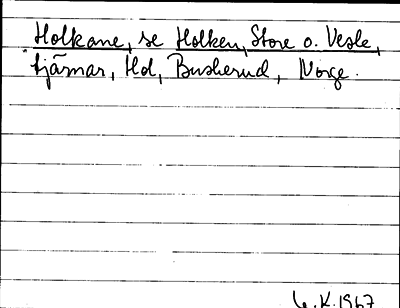 Holkane, se Holken, Store o. Vesle,
tjärnar, Hol, Buskerud, Norge.
K. 1967